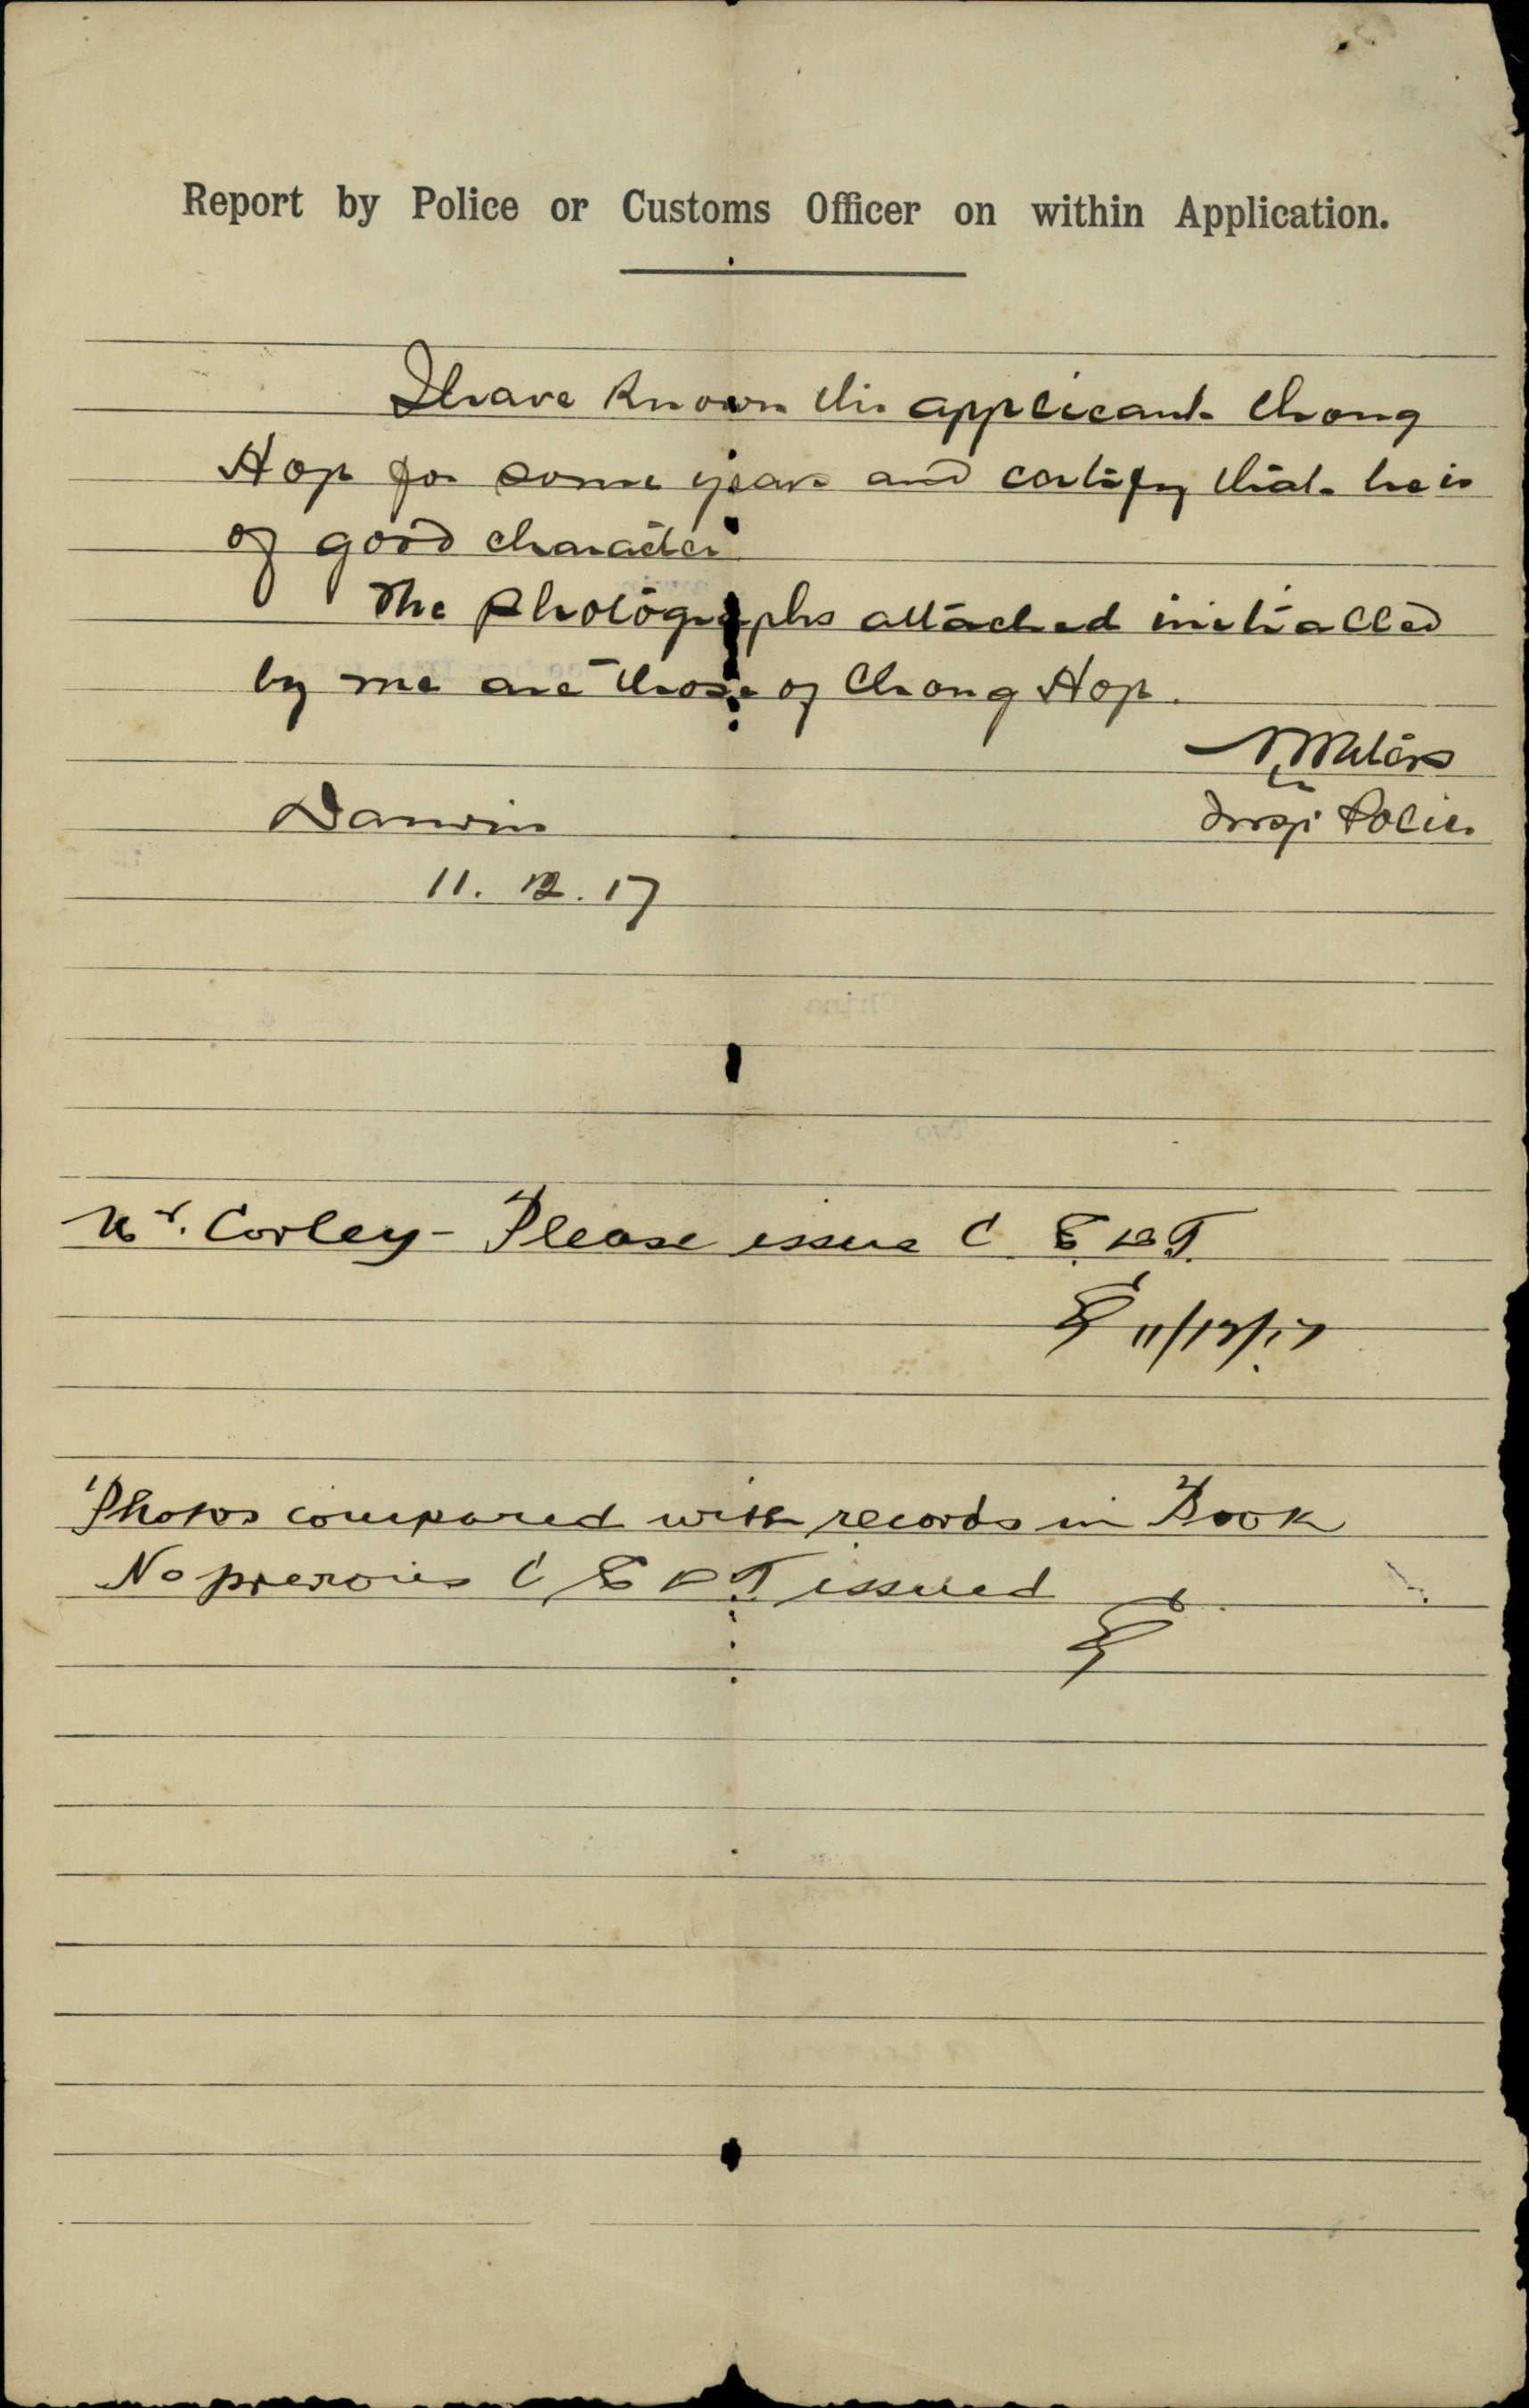 Report by Police or Customs Officer on within Application.
I have known the applicant Chong
Hop for some years and certify that he is
of good character
The photographs attached initialled
by me are those of Chong Hop.
N Waters
Insp: Police
Darwin
11. 12. 17
Mr. Corley - Please issue C. E. D. T.
11/12/17
Photos compared with records in Book
No previous C E D T issued